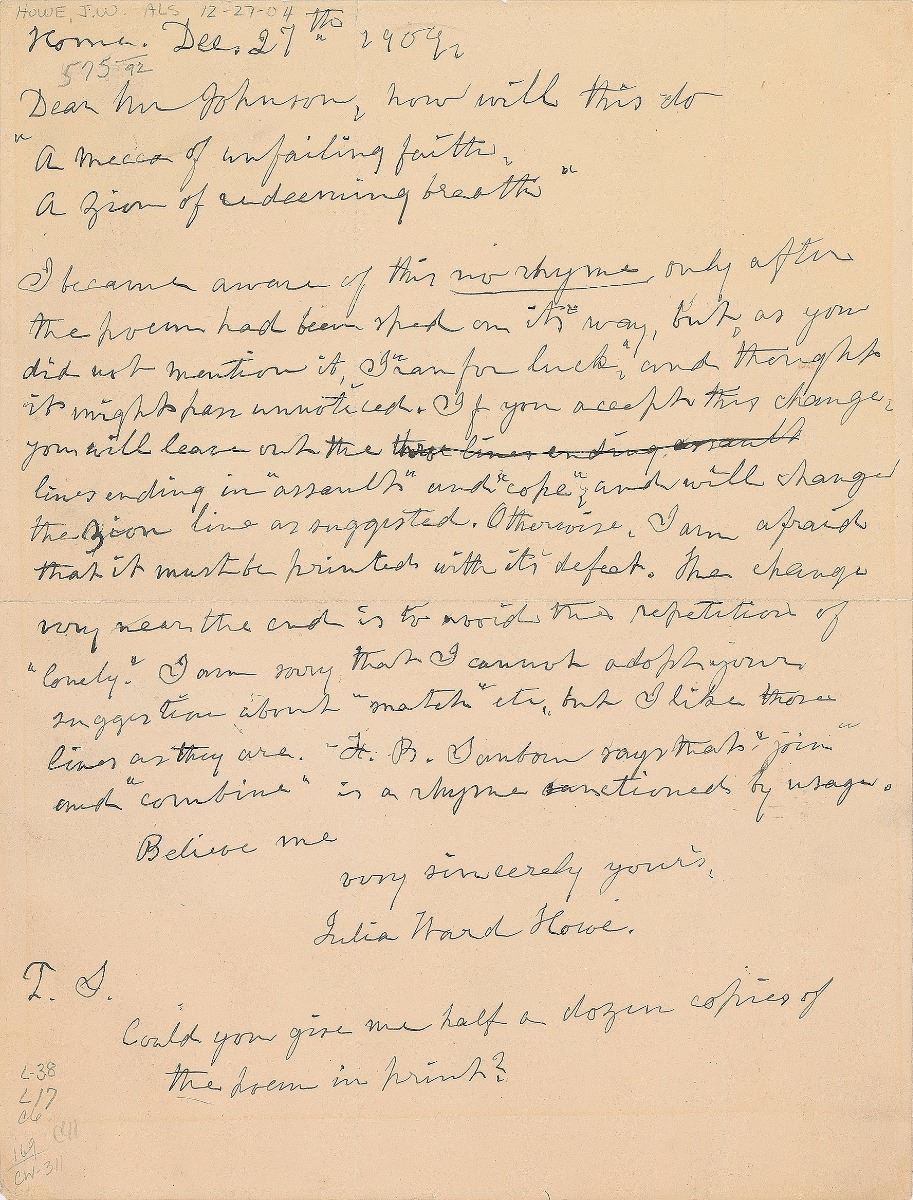 HOWE, J.W. ALS 12-27-04
Home. Dec. 27th 1904,
575/92
Dear Mr Johnson, how will this do
"A mecca of unfailing faith,
A zion of redeeming breath"
I became aware of this no rhyme only after
the poem had been sped on its way, but, as you
did not mention it, I "ran for luck", and thought
it might pass unnoticed. If you accept this change,
you will leave out the those lines ending assault
lines ending in "assault" and "cope", and will change
the zion line as suggested. Otherwise, I am afraid
that it must be printed with its defect. The change
very near the end is to avoid the repetition of
"lonely." I am sorry that I cannot adopt your
suggestion about "match" etc, but I like those
lines as they are. - F. B. Sanborn says that "join"
and "combine" is a rhyme sanctioned by usage.
Believe me
very sincerely yours,
Julia Ward Howe.
P. S.
Could you give me half a dozen copies of
the poem in print?
L-38
L17
C6
C11
169
CW-311